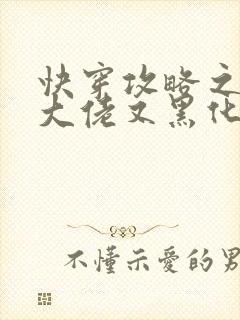 快穿攻略之
大佬又黑化
不懂示愛的男